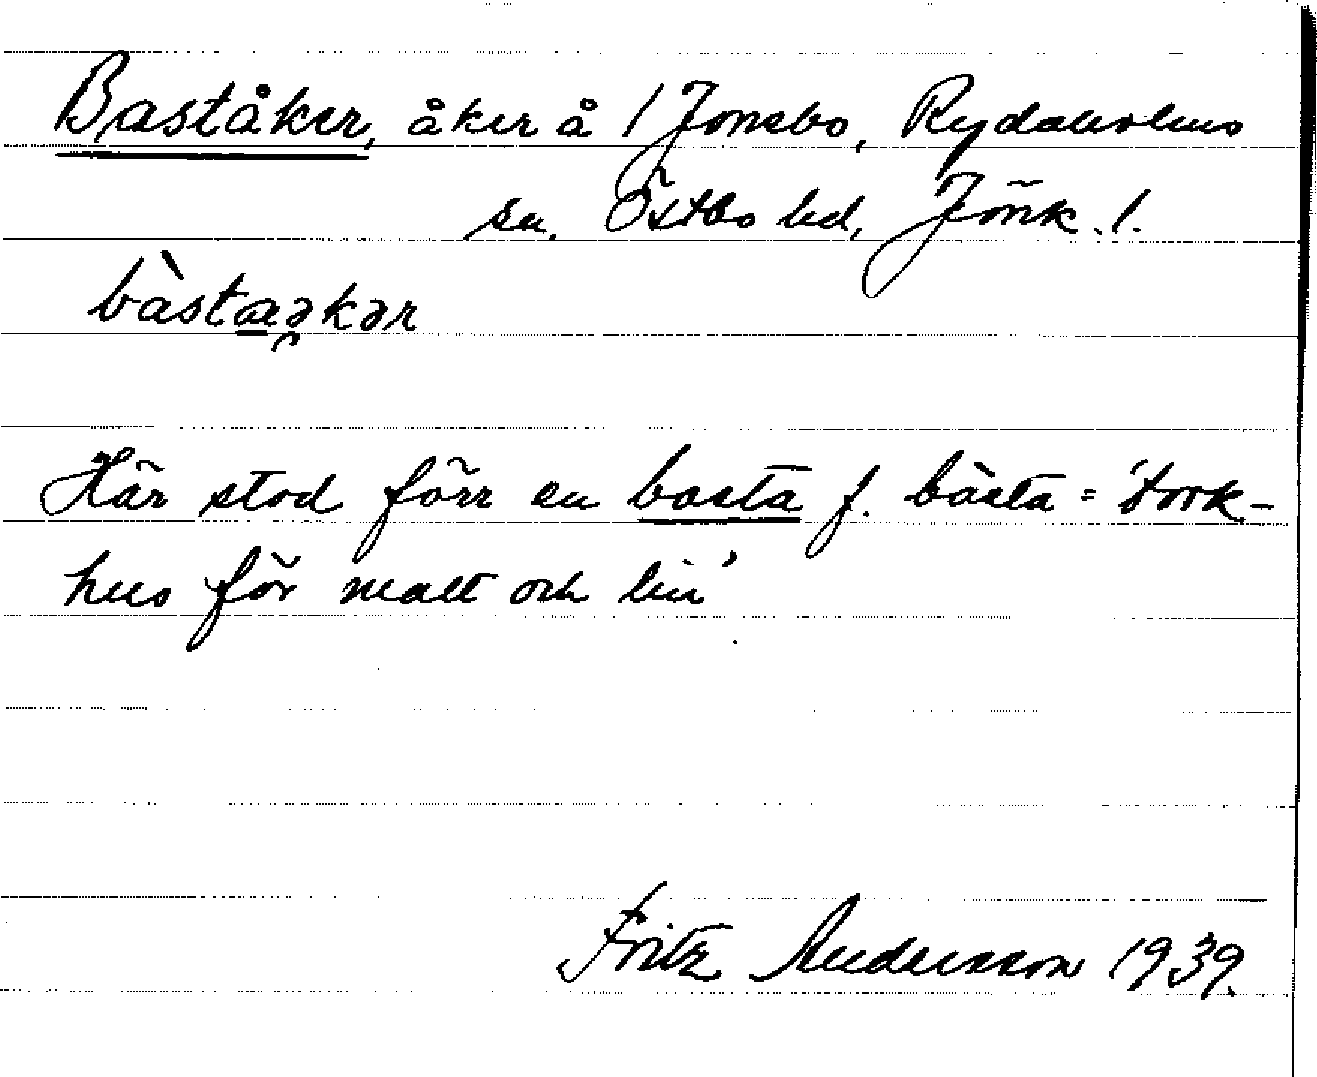 Baståker, åker å 1 Jonsbo, Rydaholms
sn. Östbo hd, Jönk. l.
bàstaə̯kər
Här stod förr en basta f. bàsta = 'tork-
hus för malt och lin'
Fritz Andersson 1939.